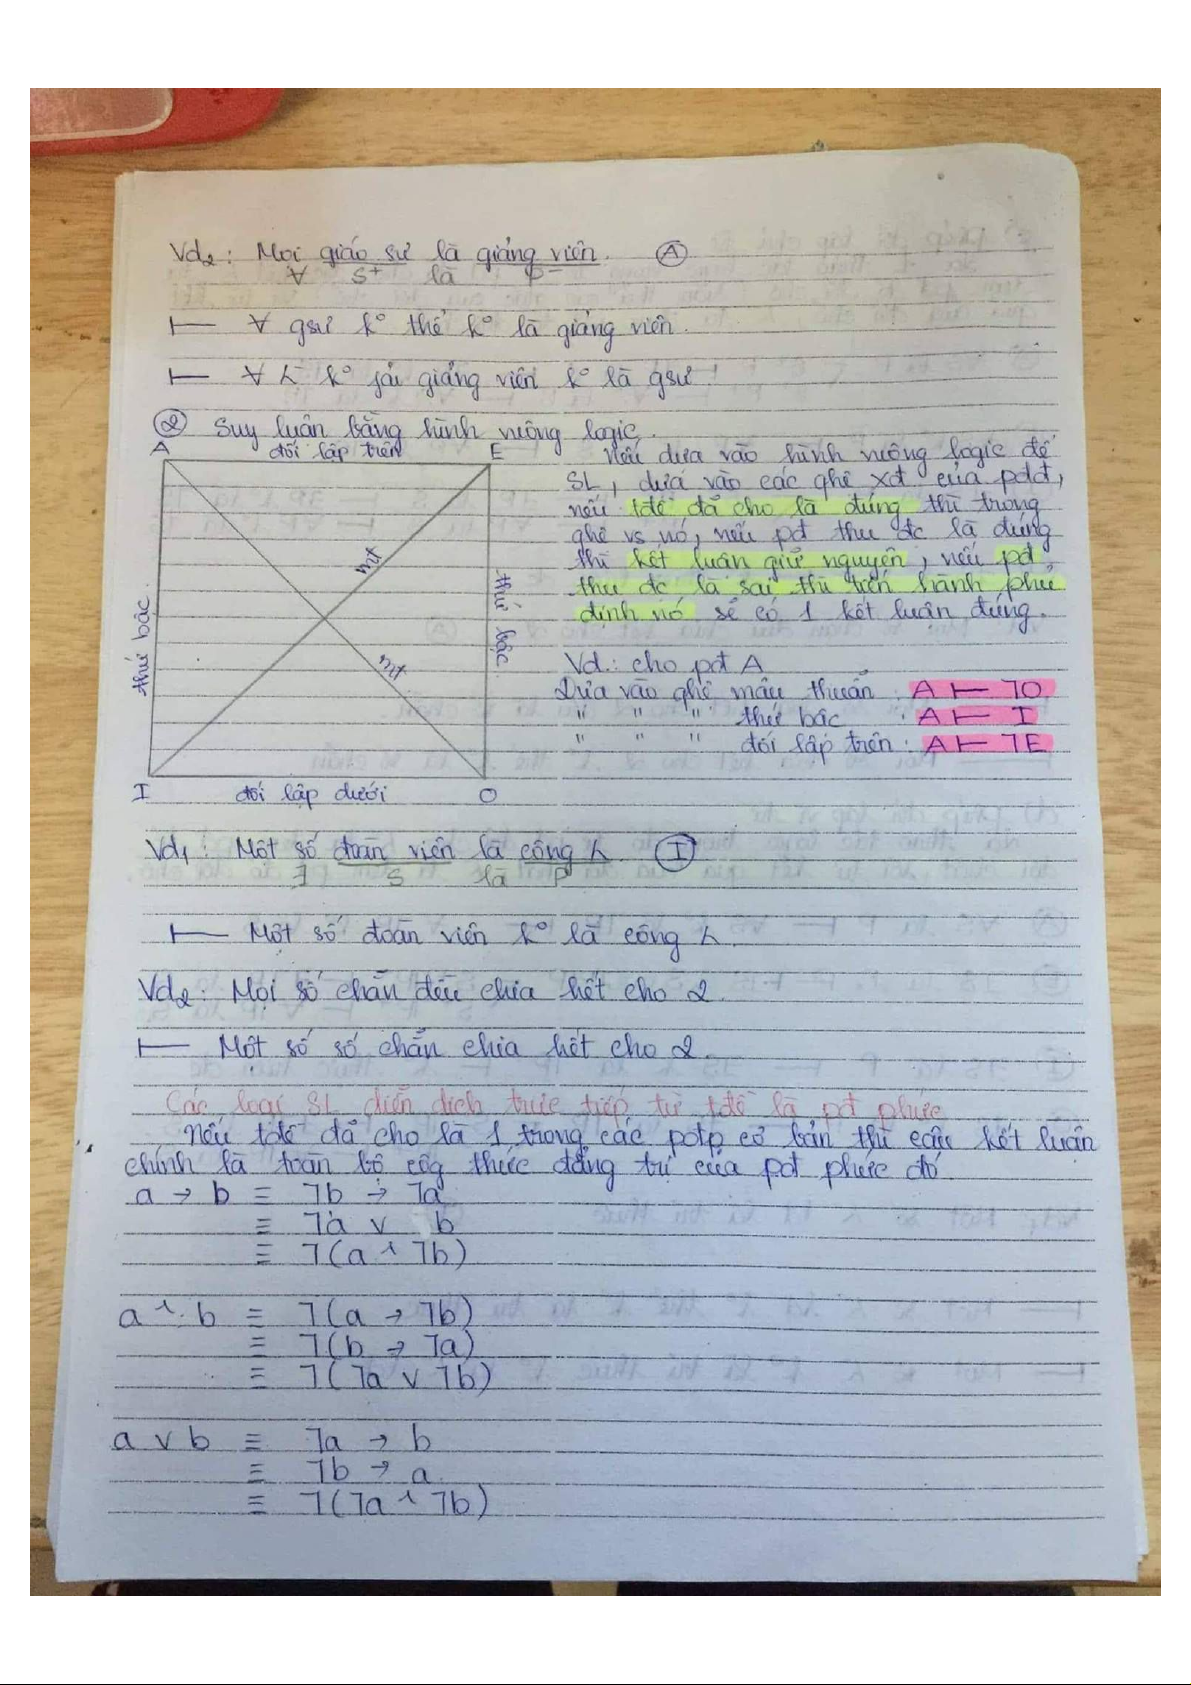 Vd₂ : Mọi giáo sư là giảng viên. Ⓐ
∀ S⁺ là P⁻
⊢ ∀ gsư k° thể k° là giảng viên.
⊢ ∀ k° fải giảng viên k° là gsư.
② Suy luận bằng hình vuông logic.
A đối lập trên E
mt
mt
thứ bậc
thứ bậc
I đối lập dưới O
Nếu dựa vào hình vuông logic để
SL, dựa vào các qhệ xđ của pđđ,
nếu tđề đã cho là đúng thì trong
qhệ vs nó, nếu pđ thu đc là đúng
thì kết luận giữ nguyên, nếu pđ
thu đc là sai thì tiến hành phủ
định nó sẽ có 1 kết luận đúng.
Vd.: cho pđ A
Dựa vào qhệ mâu thuẫn : A ⊢ ⌉O
" " " thứ bậc : A ⊢ I
" " " đối lập trên : A ⊢ ⌉E
Vd₁ : Một số đoàn viên là công Ⓘ
∃ S là P
⊢ Một số đoàn viên k° là công
Vd₂ : Mọi số chẵn đều chia hết cho 2.
⊢ Một số số chẵn chia hết cho 2.
Các loại SL diễn dịch trực tiếp từ tđề là pđ phức
Nếu tđề đã cho là 1 trong các pđtp cơ bản thì câu kết luận
chính là toàn bộ côg thức đẳng trị của pđ phức đó.
a → b ≡ ⌉b → ⌉a
≡ ⌉a ∨ b
≡ ⌉(a ∧ ⌉b)
a ∧ b ≡ ⌉(a → ⌉b)
≡ ⌉(b → ⌉a)
≡ ⌉(⌉a ∨ ⌉b)
a ∨ b ≡ ⌉a → b
≡ ⌉b → a
≡ ⌉(⌉a ∧ ⌉b)